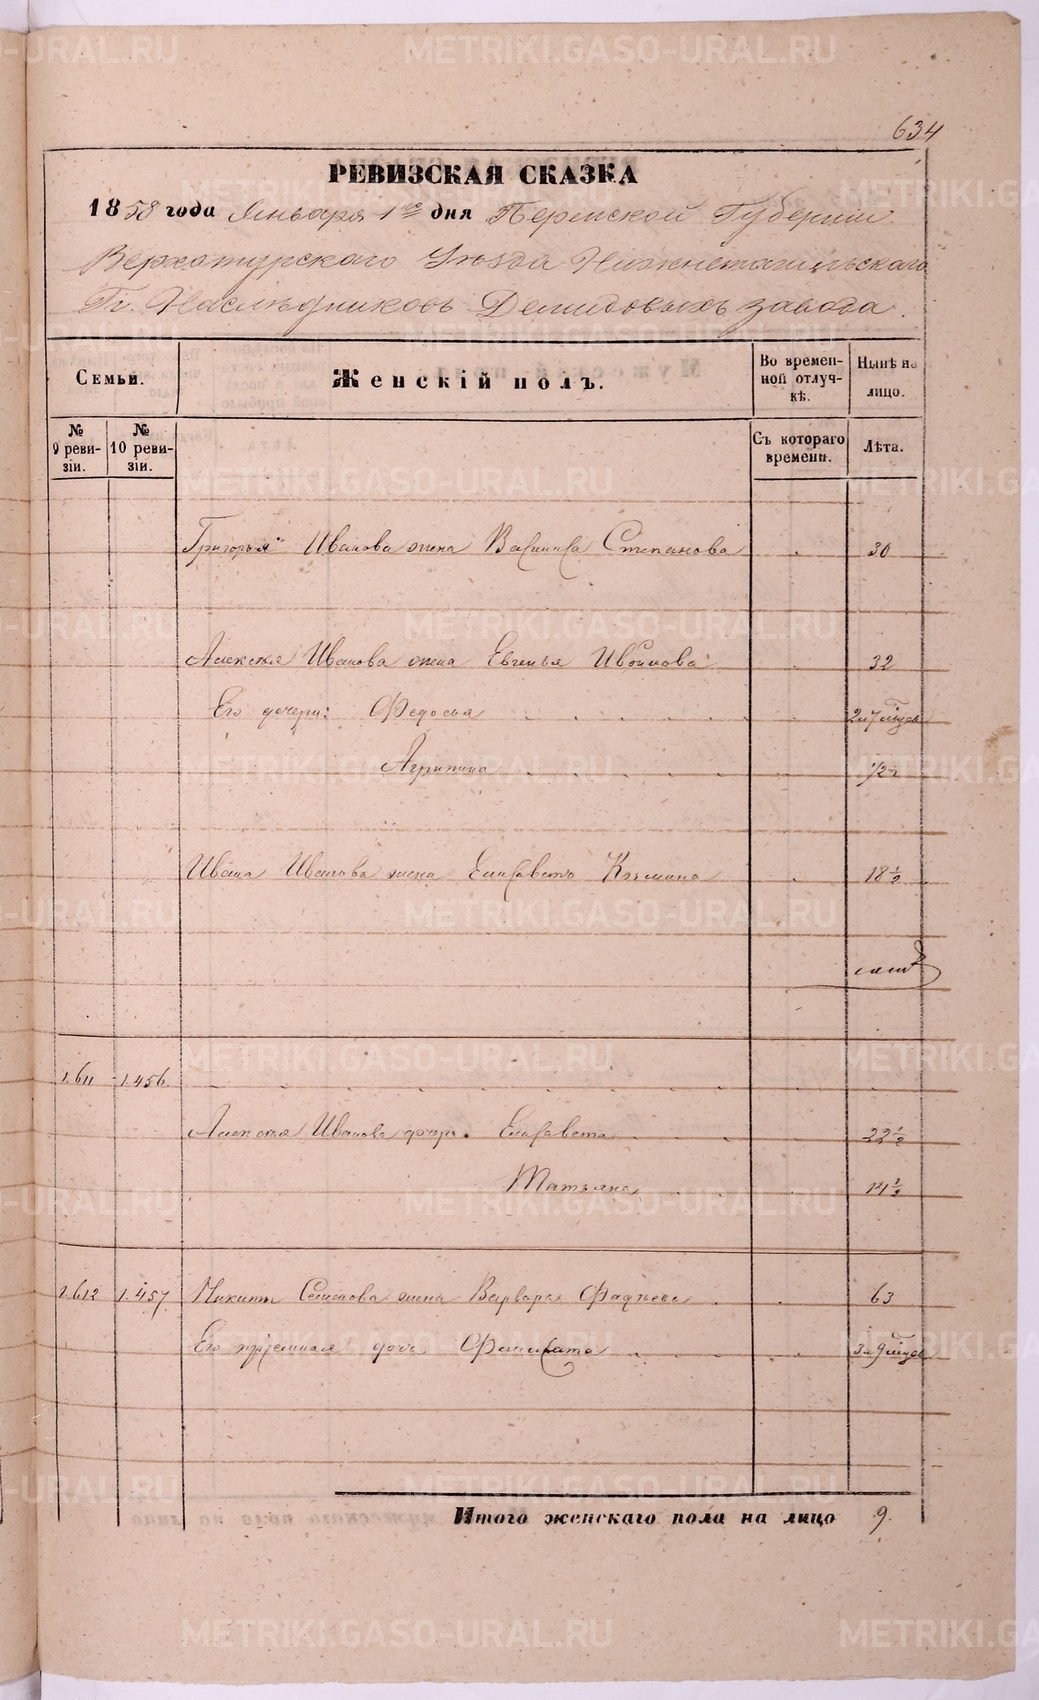 634
РЕВИЗСКАЯ СКАЗКА
1858 года Января 1го дня Пермской Губернiи
Верхотурскаго Уѣзда Нижнетагильскаго
Гг. Наслѣдниковъ Демидовыхъ завода.
Семьи.
Женскій полъ.
Во времен-
ной отлуч-
кѣ.
Нынѣ на
лицо.
№
9 реви-
зіи.
№
10 реви-
зіи.
Съ котораго
времени.
Лѣта.
Григорья Иванова жена Василиса Степанова 30
Алексѣя Иванова жена Евгенья Ивоилова 32
Его дочери: Федосья 2 и 7 мѣсяц
Агрипина 1/2 г
Ивана Иванова жена Елисавета Кузмина 18 1/2
1.611 1.456
Алексѣя Иванова дочерь. Елисавета 22 1/2
Татьяна 14 1/2
1.612 1.457 Никиты Семенова жена Варвара Фадѣева 63
Его пріемная дочь Фелисата 3 и 9 мѣсяц
Итого женскаго пола на лицо 9.
METRIKI.GASO-URAL.RU